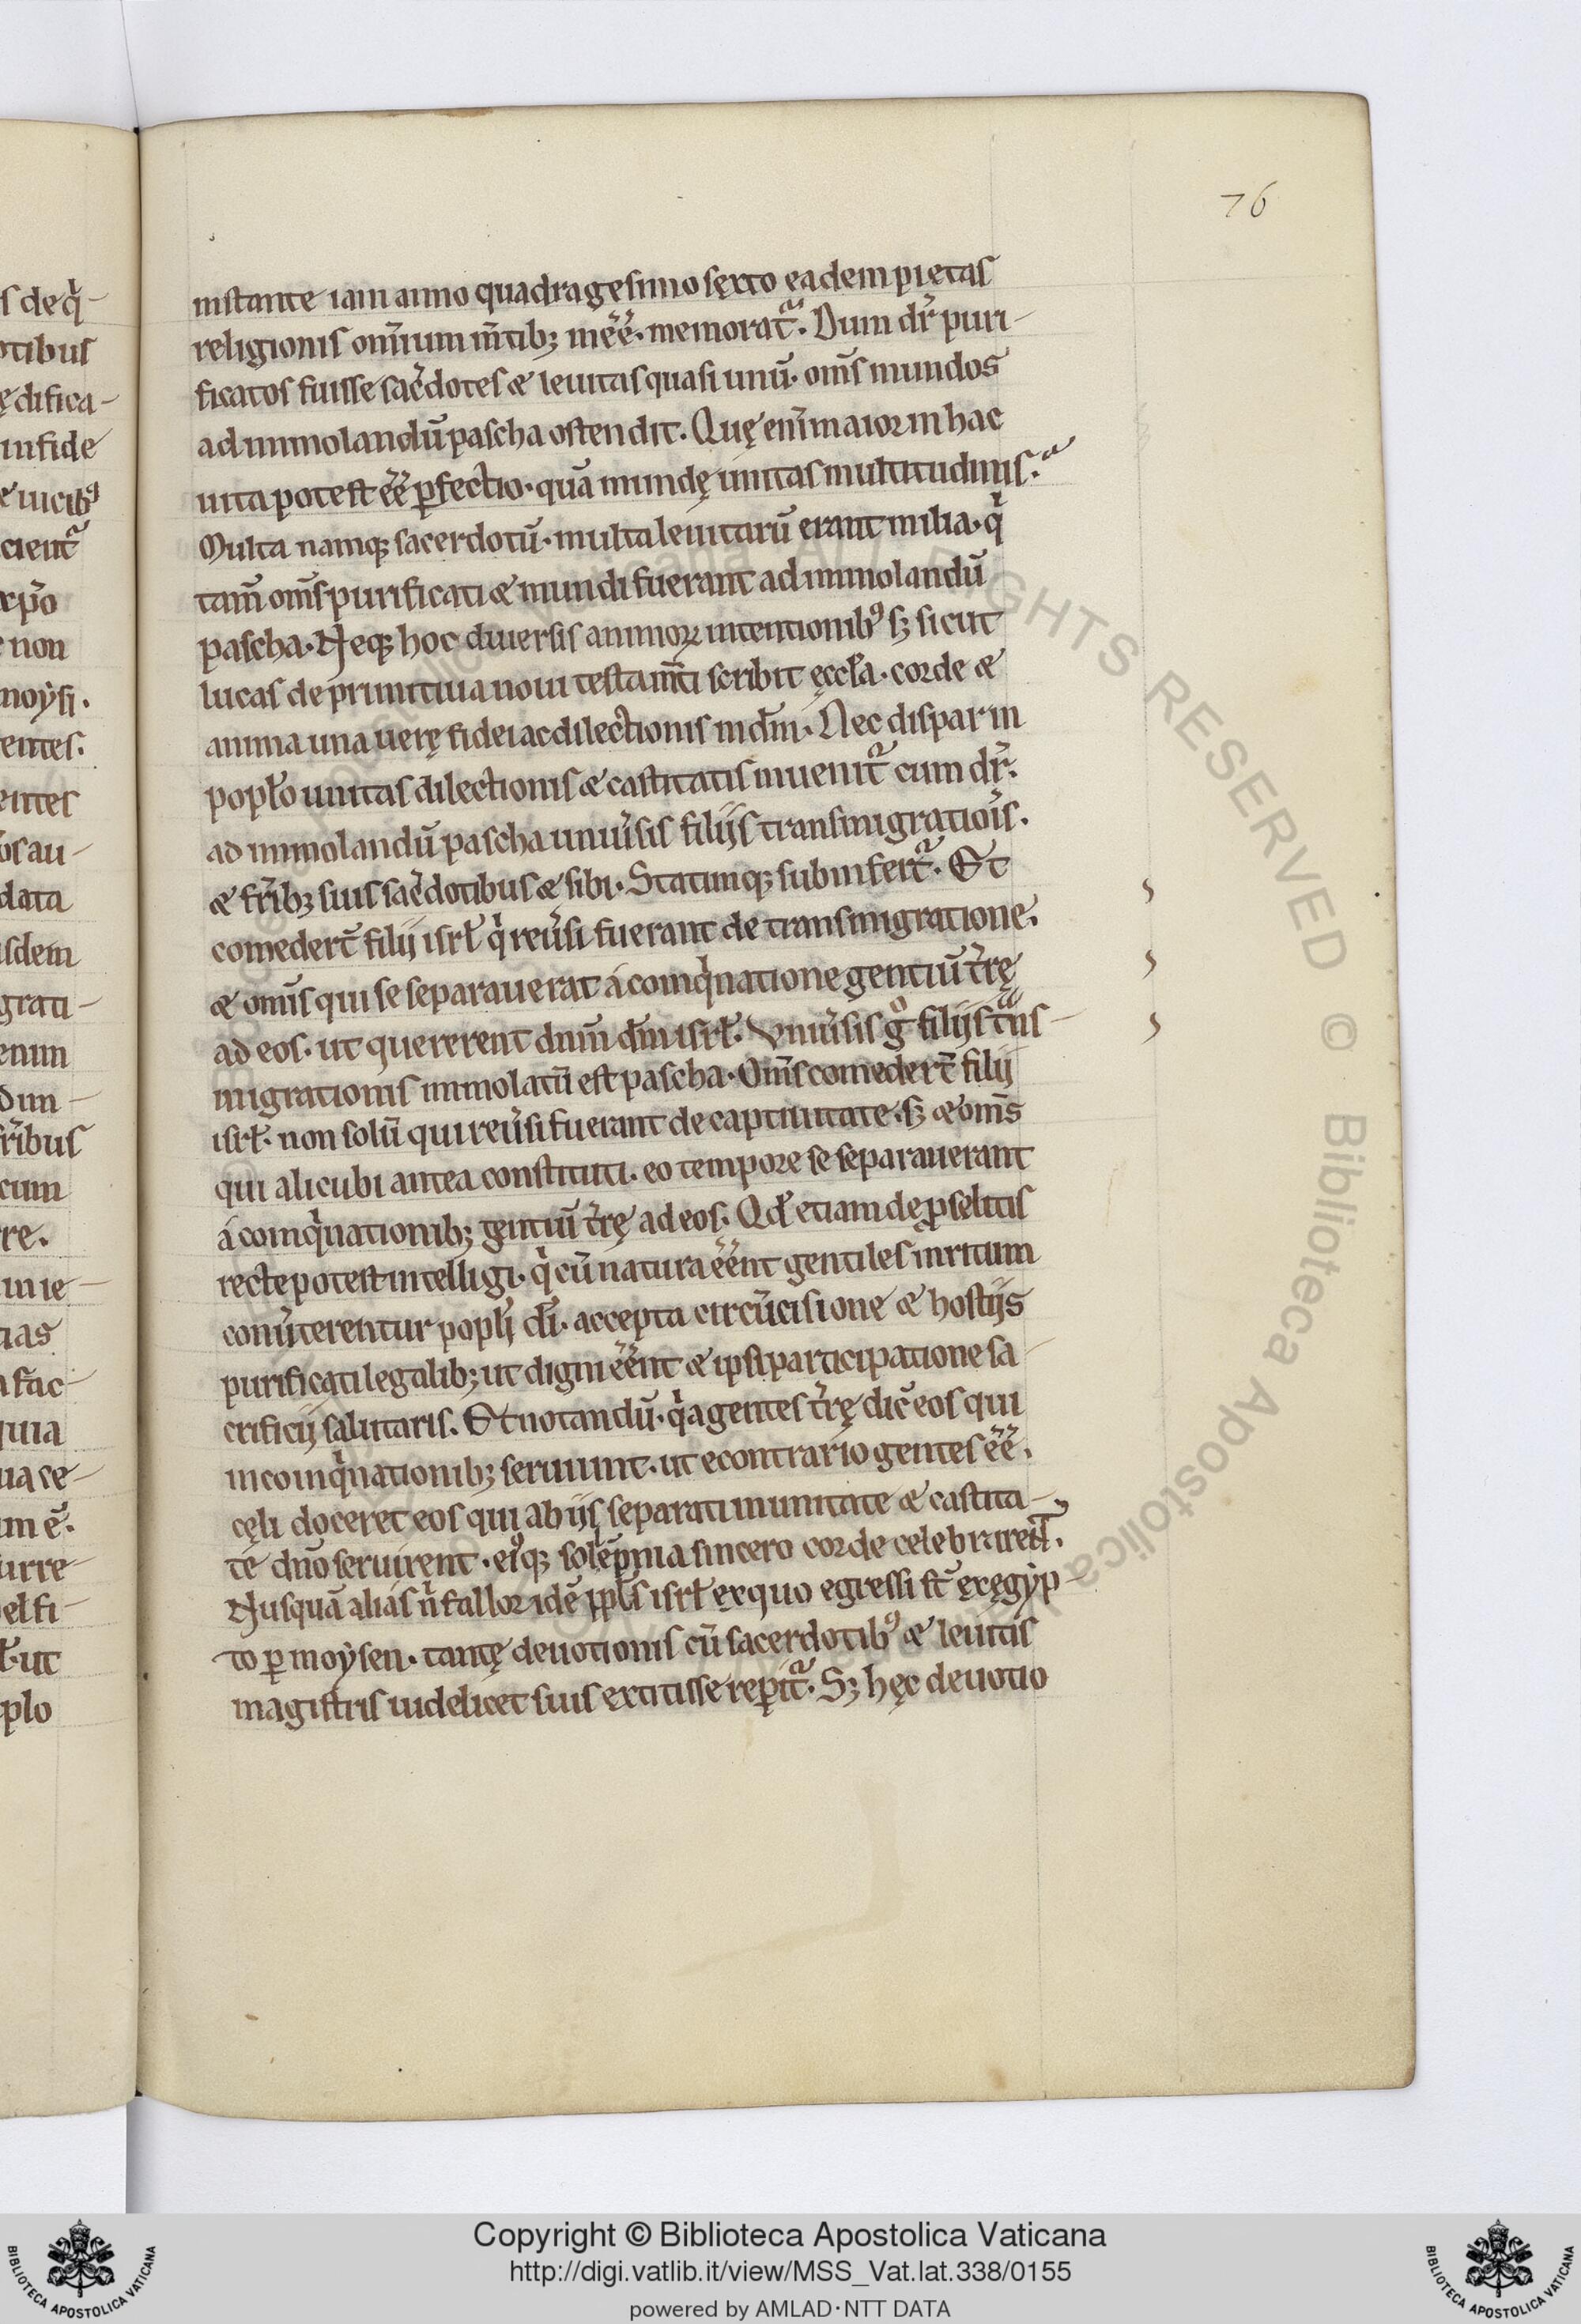 76
instante iam anno quadragesimo sexto eadem pietas
religionis om̄ium m̄tib; inēē. memorat᷑. Dum dr̄ puri-
ficatos fuisse sac̄dotes & leuitas quasi unū. om̄s mundos
ad immolandū pascha ostendit. Quę eni᷑ maior in hac
uita potest ēē ꝑfectio. quā mundę unitas multitudinis.
Multa namq; sacerdotū. multa leuitarū erant milia. q̇
tam̄ om̄s purificati & mundi fuerant ad immolandū
pascha. Neq; hoc diuersis animoꝝ intentionibꝰ s; sicut
lucas de primitiua noui testam̄ti scribit ęccl̄a. corde &
anima una uerę fidei ac dilectionis in dm̄. Nec dispar in
popl̄o unitas dilectionis & castitatis inuenit᷑ cum dr̄.
ad immolandū pascha uniu̾sis filijs transmigratiōis.
& fr̄ib; suis sac̄dotibus & sibi. Statimq; subinfert᷑. Et
comeder̄t filij isrl̄ q̇ reu̾si fuerant de transmigratione.
& om̄is qui se separauerat á coinq̇natione gentiū t̄rę
ad eos. ut quererent dnm̄ dm̄ isrl̄. Vniu̾sis gͦ filijs tᷓns-
migrationis immolatū est pascha. Om̄s comeder̄t filij
isrl̄. non solū qui reu̾si fuerant de captiuitate. s; & om̄s
qui alicubi antea constituti. eo tempore se separauerant
á coinq̇nationib; gentiū t̄rę ad eos. Qd̄ etiam de ꝓselitis
recte potest intelligi. q̇ cū natura ēēnt gentiles in ritum
conu̾terentur popl̄i di̅. accepta circūcisione & hostijs
purificati legalib; ut digni ēēnt & ipsi participatione sa-
crificij salutaris. Et notandū. q̇a gentes t̄rę dic̄ eos qui
in coinq̇nationib; seruiunt. ut econtrario gentes ēē.
cęli doceret eos qui ab ijs separati in unitate & castita-
te dn̄o seruirent. eiꝰq; solēpnia sincero corde celebrarent.
Nusquā alias n̄ fallor idē ppl̄s isrl̄ ex quo egressi st̄ ex ęgyp-
to ꝑ moysen. tantę deuotionis cū sacerdotibꝰ & leuitis
magistris uidelicet suis extitisse reꝑit᷑. S; hęc deuotio
Copyright © Biblioteca Apostolica Vaticana
http://digi.vatlib.it/view/MSS_Vat.lat.338/0155
powered by AMLAD·NTT DATA